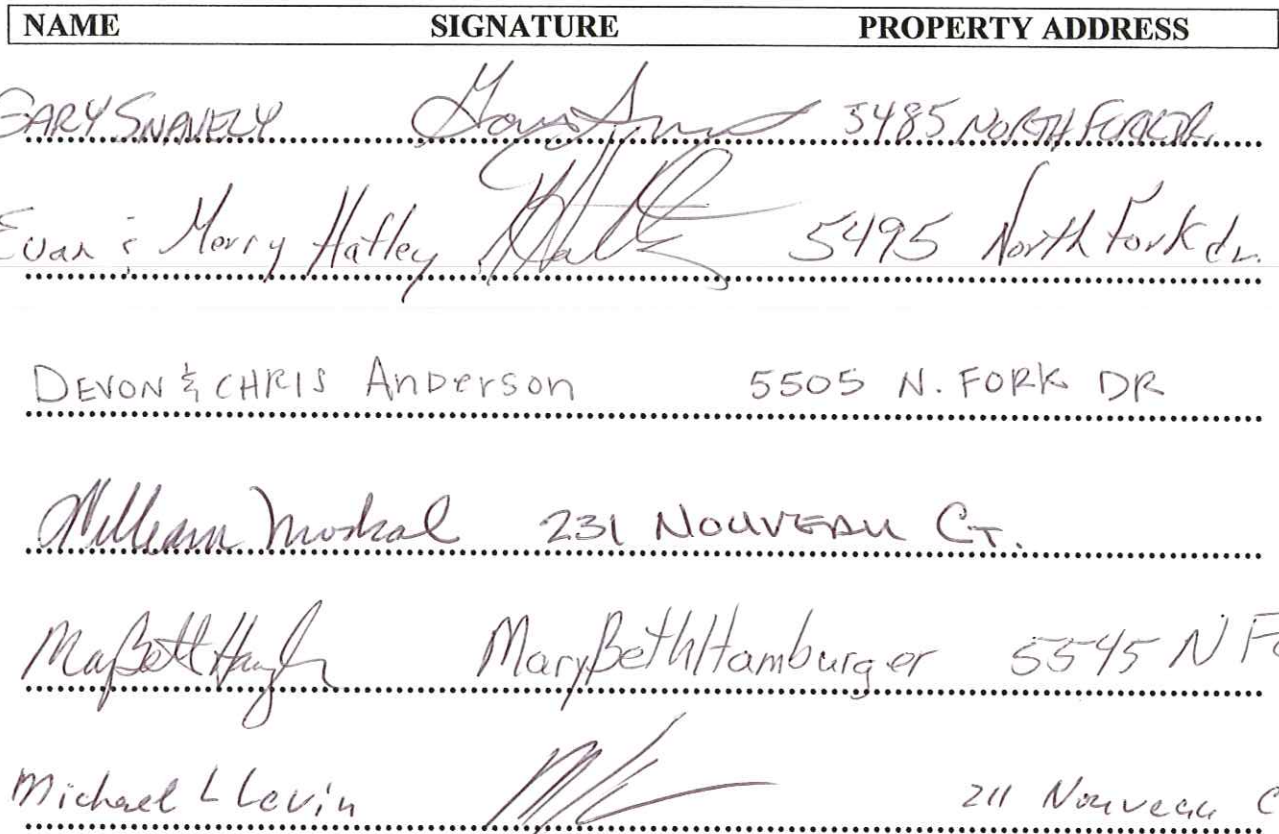 NAME SIGNATURE PROPERTY ADDRESS
GARY SNAVELY 5485 NORTH FORK DR.
Evan & Merry Hatley 5495 North Fork dr.
DEVON & CHRIS AnDerson 5505 N. FORK DR
William Moskal 231 NOUVEAU CT.
MaryBeth Hamburger 5545 N Fo
Michael L Levin 211 Nouveau C